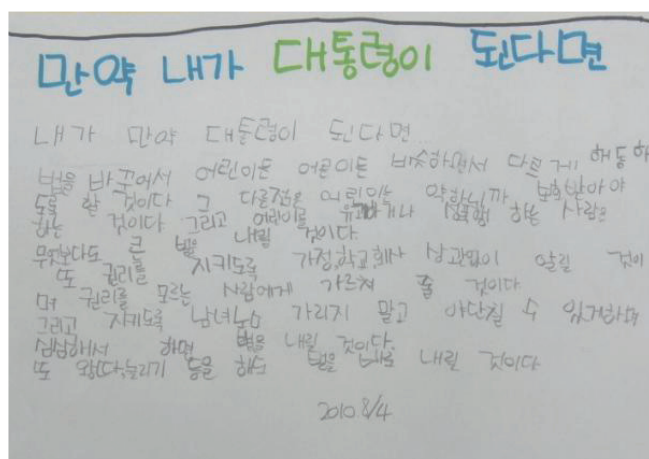 만약 내가 대통령이 된다면
내가 만약 대통령이 된다면
법을 바꾸어서 어린이든 어른이든 비슷하면서 다르게 해동하
도록 할 것이다 그 다른점은 어린이는 약하니까 보호받아야
하는 것이다 그리고 어린이를 유괴하거나 하는 사람은
무엇보다도 큰 벌을 내릴 것이다.
또 권리를 지키도록 가정,학교,회사 상관없이 알릴 것이
며 권리를 모르는 사람에게 가르쳐 줄 것이다
그리고 지키도록 남녀노소 가리지 말고 야단칠 수 있게하며
심심해서 하면 벌을 내릴 것이다.
또 왕따,놀리기 등을 해도 벌을 내릴 것이다
2010.8/4